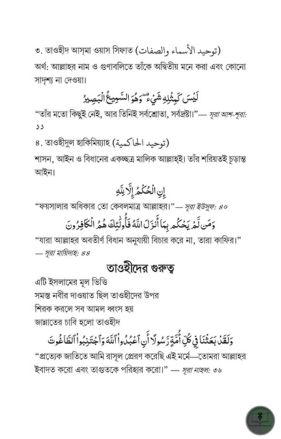 ৩. তাওহীদ আস্মা ওয়াস সিফাত (توحيد الأسماء والصفات)
অর্থ: আল্লাহর নাম ও গুণাবলিতে তাঁকে অদ্বিতীয় মনে করা এবং কোনো
সাদৃশ্য না দেওয়া।
لَيْسَ كَمِثْلِهِ شَيْءٌ ۖ وَهُوَ السَّمِيعُ الْبَصِيرُ
“তাঁর মতো কিছুই নেই, আর তিনিই সর্বশ্রোতা, সর্বদ্রষ্টা।”— সূরা আশ-শুরা:
১১
৪. তাওহীদুল হাকিমিয়্যাহ (توحيد الحاكمية)
শাসন, আইন ও বিধানের একচ্ছত্র মালিক আল্লাহই। তাঁর শরিয়তই চূড়ান্ত
আইন।
إِنِ الْحُكْمُ إِلَّا لِلَّهِ
“ফয়সালার অধিকার তো কেবলমাত্র আল্লাহর।”— সূরা ইউসুফ: ৪০
وَمَن لَّمْ يَحْكُم بِمَا أَنزَلَ اللَّهُ فَأُولَٰئِكَ هُمُ الْكَافِرُونَ
“যারা আল্লাহর অবতীর্ণ বিধান অনুযায়ী বিচার করে না, তারা কাফির।”
— সূরা মায়িদাহ: ৪৪
তাওহীদের গুরুত্ব
এটি ইসলামের মূল ভিত্তি
সমস্ত নবীর দাওয়াত ছিল তাওহীদের উপর
শিরক করলে সব আমল ধ্বংস হয়
জান্নাতের চাবি হলো তাওহীদ
وَلَقَدْ بَعَثْنَا فِي كُلِّ أُمَّةٍ رَّسُولًا أَنِ اعْبُدُوا اللَّهَ وَاجْتَنِبُوا الطَّاغُوتَ
“প্রত্যেক জাতিতে আমি রাসূল প্রেরণ করেছি এই মর্মে—তোমরা আল্লাহর
ইবাদত করো এবং তাগুতকে পরিহার করো।” — সূরা নাহল: ৩৬